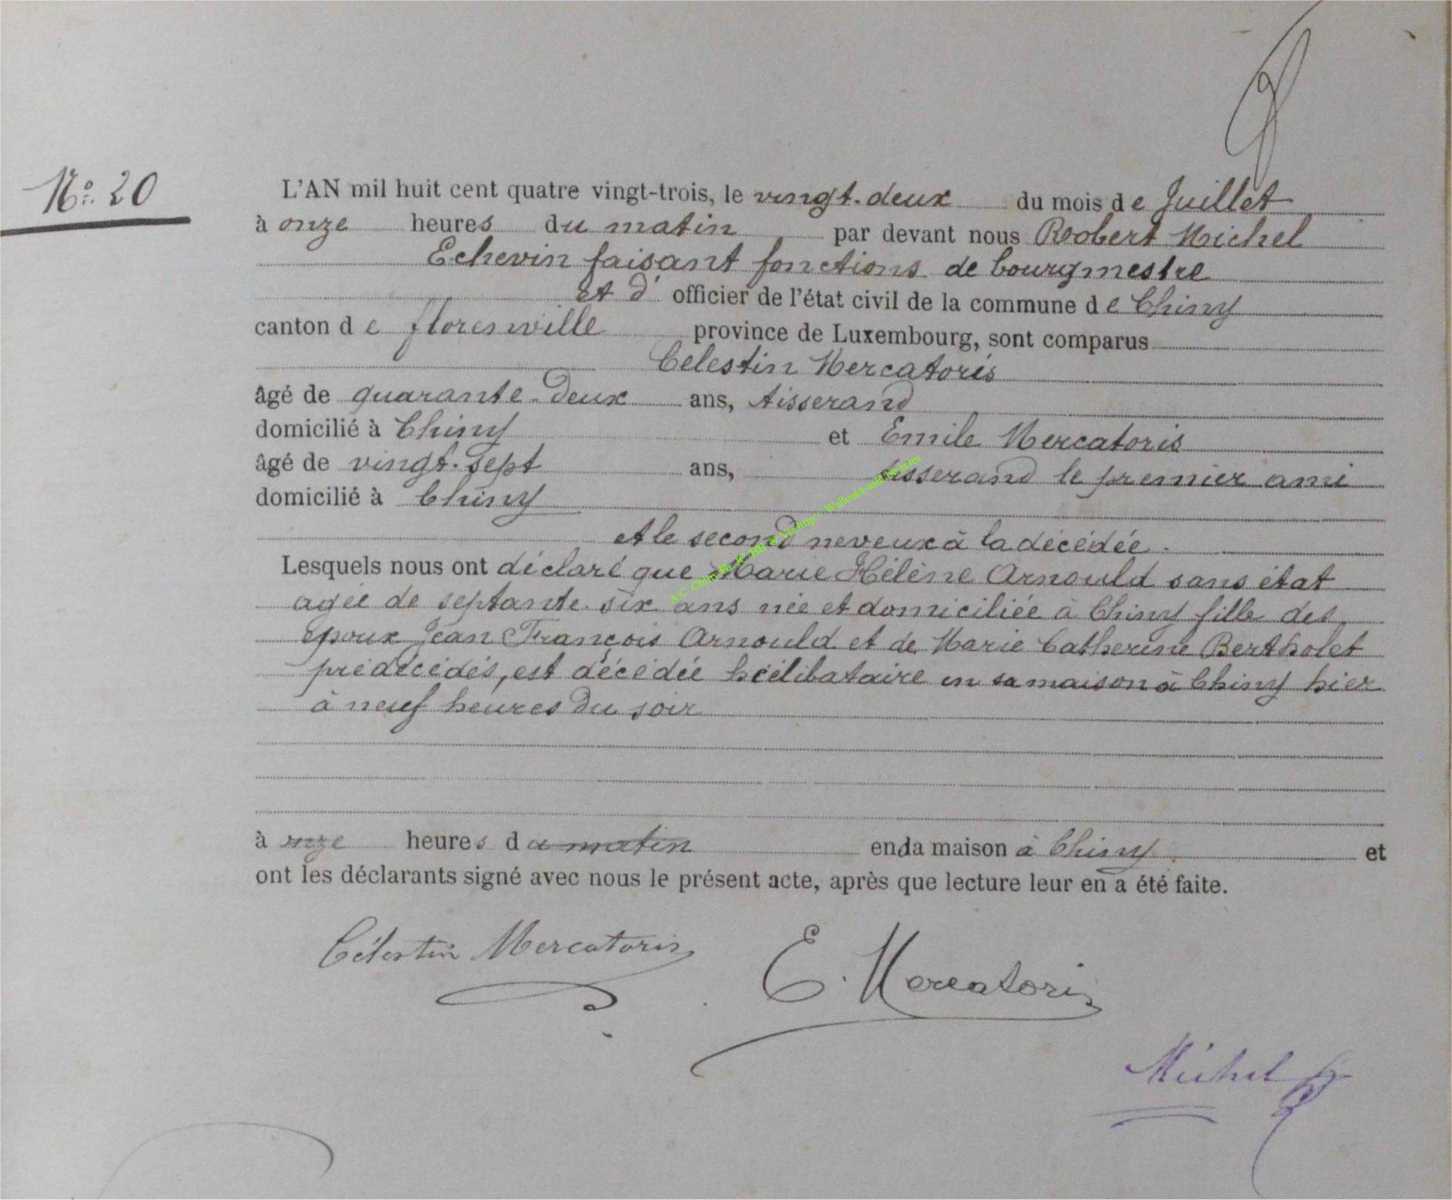 No. 20
L'AN mil huit cent quatre vingt-trois, le vingt-deux du mois de Juillet
à onze heures du matin par devant nous Robert Michel
Echevin faisant fonctions de bourgmestre
et d' officier de l'état civil de la commune de Chiny
canton de florenville province de Luxembourg, sont comparus
Celestin Mercatoris
âgé de quarante-deux ans, tisserand
domicilié à Chiny et Emile Mercatoris
âgé de vingt-sept ans, tisserand le premier ami
domicilié à Chiny
et le second neveux à la décédée.
Lesquels nous ont déclaré que Marie Hélène Arnould sans état
agée de septante six ans née et domiciliée à Chiny fille des
époux Jean François Arnould et de Marie Catherine Bertholet
prédécédés, est décédée célibataire en sa maison à Chiny hier
à neuf heures du soir
à onze heures du matin en da maison à Chiny et
ont les déclarants signé avec nous le présent acte, après que lecture leur en a été faite.
Célestin Mercatoris
E. Mercatoris
Michel R